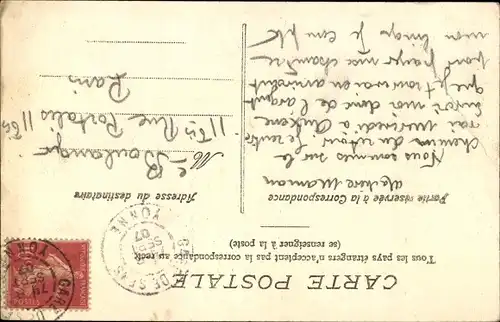 CARTE POSTALE
Tous les pays étrangers n'acceptent pas la correspondance au recto
(se renseigner à la poste)
Partie réservée à la Correspondance
Adresse du destinataire
ma chère Maman
Nous sommes sur le
chemin du retour. Je rentre
rai Mercredi à Auxerre
envoi moi donc de l'argent
que je trouverai en arrivant
pour payer ma chambre
mon linge je compte
Mr Boulanger
11 Bis Rue Portalis 11 Bis
Paris
GARE DE SENS
YONNE
07